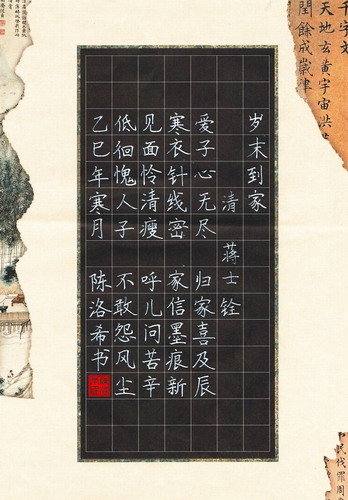 千字文
天地玄黃宇宙洪
閏餘成歲律
岁末到家
清 蒋士铨
爱子心无尽 归家喜及辰
寒衣针线密 家信墨痕新
见面怜清瘦 呼儿问苦辛
低徊愧人子 不敢怨风尘
乙巳年寒月 陈洛希书
民伐罪周